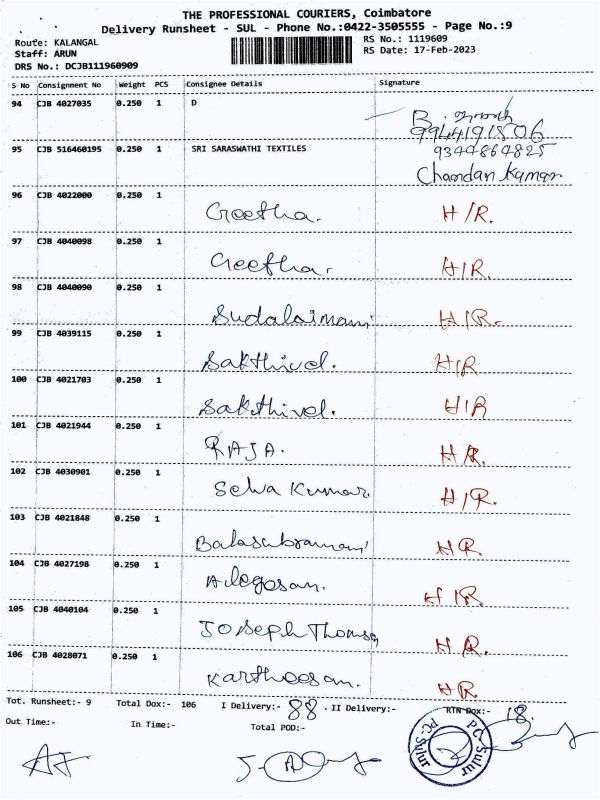 THE PROFESSIONAL COURIERS, Coimbatore
Delivery Runsheet - SUL - Phone No.:0422-3505555 - Page No.:9
Route: KALANGAL
RS No.: 1119609
Staff: ARUN
RS Date: 17-Feb-2023
DRS No.: DCJB111960909
S No Consignment No Weight PCS Consignee Details Signature
94 CJB 4027035 0.250 1 D
9944191806
95 CJB 516460195 0.250 1 SRI SARASWATHI TEXTILES 9344864825
Chandan Kumar
96 CJB 4022000 0.250 1 Geetha. H/R.
97 CJB 4040098 0.250 1 Geetha. H/R.
98 CJB 4040090 0.250 1 Sudalaimani H/R.
99 CJB 4039115 0.250 1 Sakthivel. H/R
100 CJB 4021703 0.250 1 Sakthivel. H/R
101 CJB 4021944 0.250 1 RAJA. HR.
102 CJB 4030901 0.250 1 Selva Kumar H/R.
103 CJB 4021848 0.250 1 Balasubramani HR.
104 CJB 4027198 0.250 1 H/R.
105 CJB 4040104 0.250 1 Joseph Thomas HR.
106 CJB 4028071 0.250 1 HR.
Tot. Runsheet:- 9 Total Dox:- 106 I Delivery:- 88. II Delivery:- RTN Dox:- 18.
Out Time:- In Time:- Total POD:-
PC-Sulur
PC-Sulur